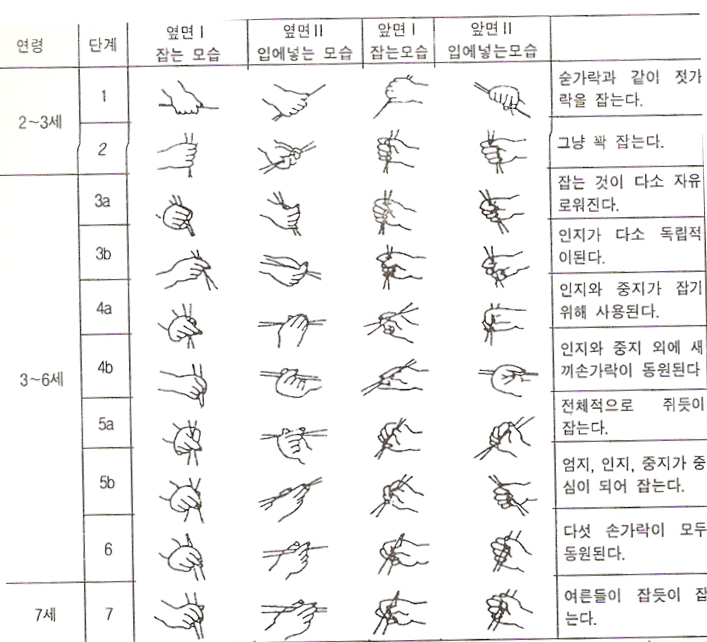 연령 단계 옆면 I 옆면 II 앞면 I 앞면 II
잡는 모습 입에넣는 모습 잡는모습 입에넣는모습
2~3세
1 숟가락과 같이 젓가
락을 잡는다.
2 그냥 꽉 잡는다.
3~6세
3a 잡는 것이 다소 자유
로워진다.
3b 인지가 다소 독립적
이된다.
4a 인지와 중지가 잡기
위해 사용된다.
4b 인지와 중지 외에 새
끼손가락이 동원된다
5a 전체적으로 쥐듯이
잡는다.
5b 엄지, 인지, 중지가 중
심이 되어 잡는다.
6 다섯 손가락이 모두
동원된다.
7세 7 여른들이 잡듯이 잡
는다.